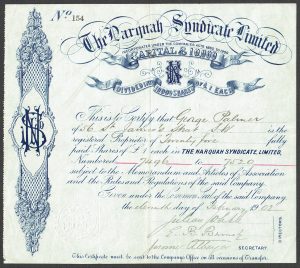 No. 154
The Narquah Syndicate Limited
CAPITAL £10,000
DIVIDED INTO 10,000 SHARES OF £1 EACH
NS
This is to Certify that George Palmer
of 56 St James's Street SW is the
registered Proprietor of Twenty five fully
paid Shares of £1 each in THE NARQUAH SYNDICATE, LIMITED,
Numbered 7496 to 7520
subject to the Memorandum and Articles of Association
and the Rules and Regulations of the said Company.
Given under the Common Seal of the said Company
the eleventh day of February 190
SECRETARY
This Certificate must be sent to the Company's Office on all occasions of Transfer.